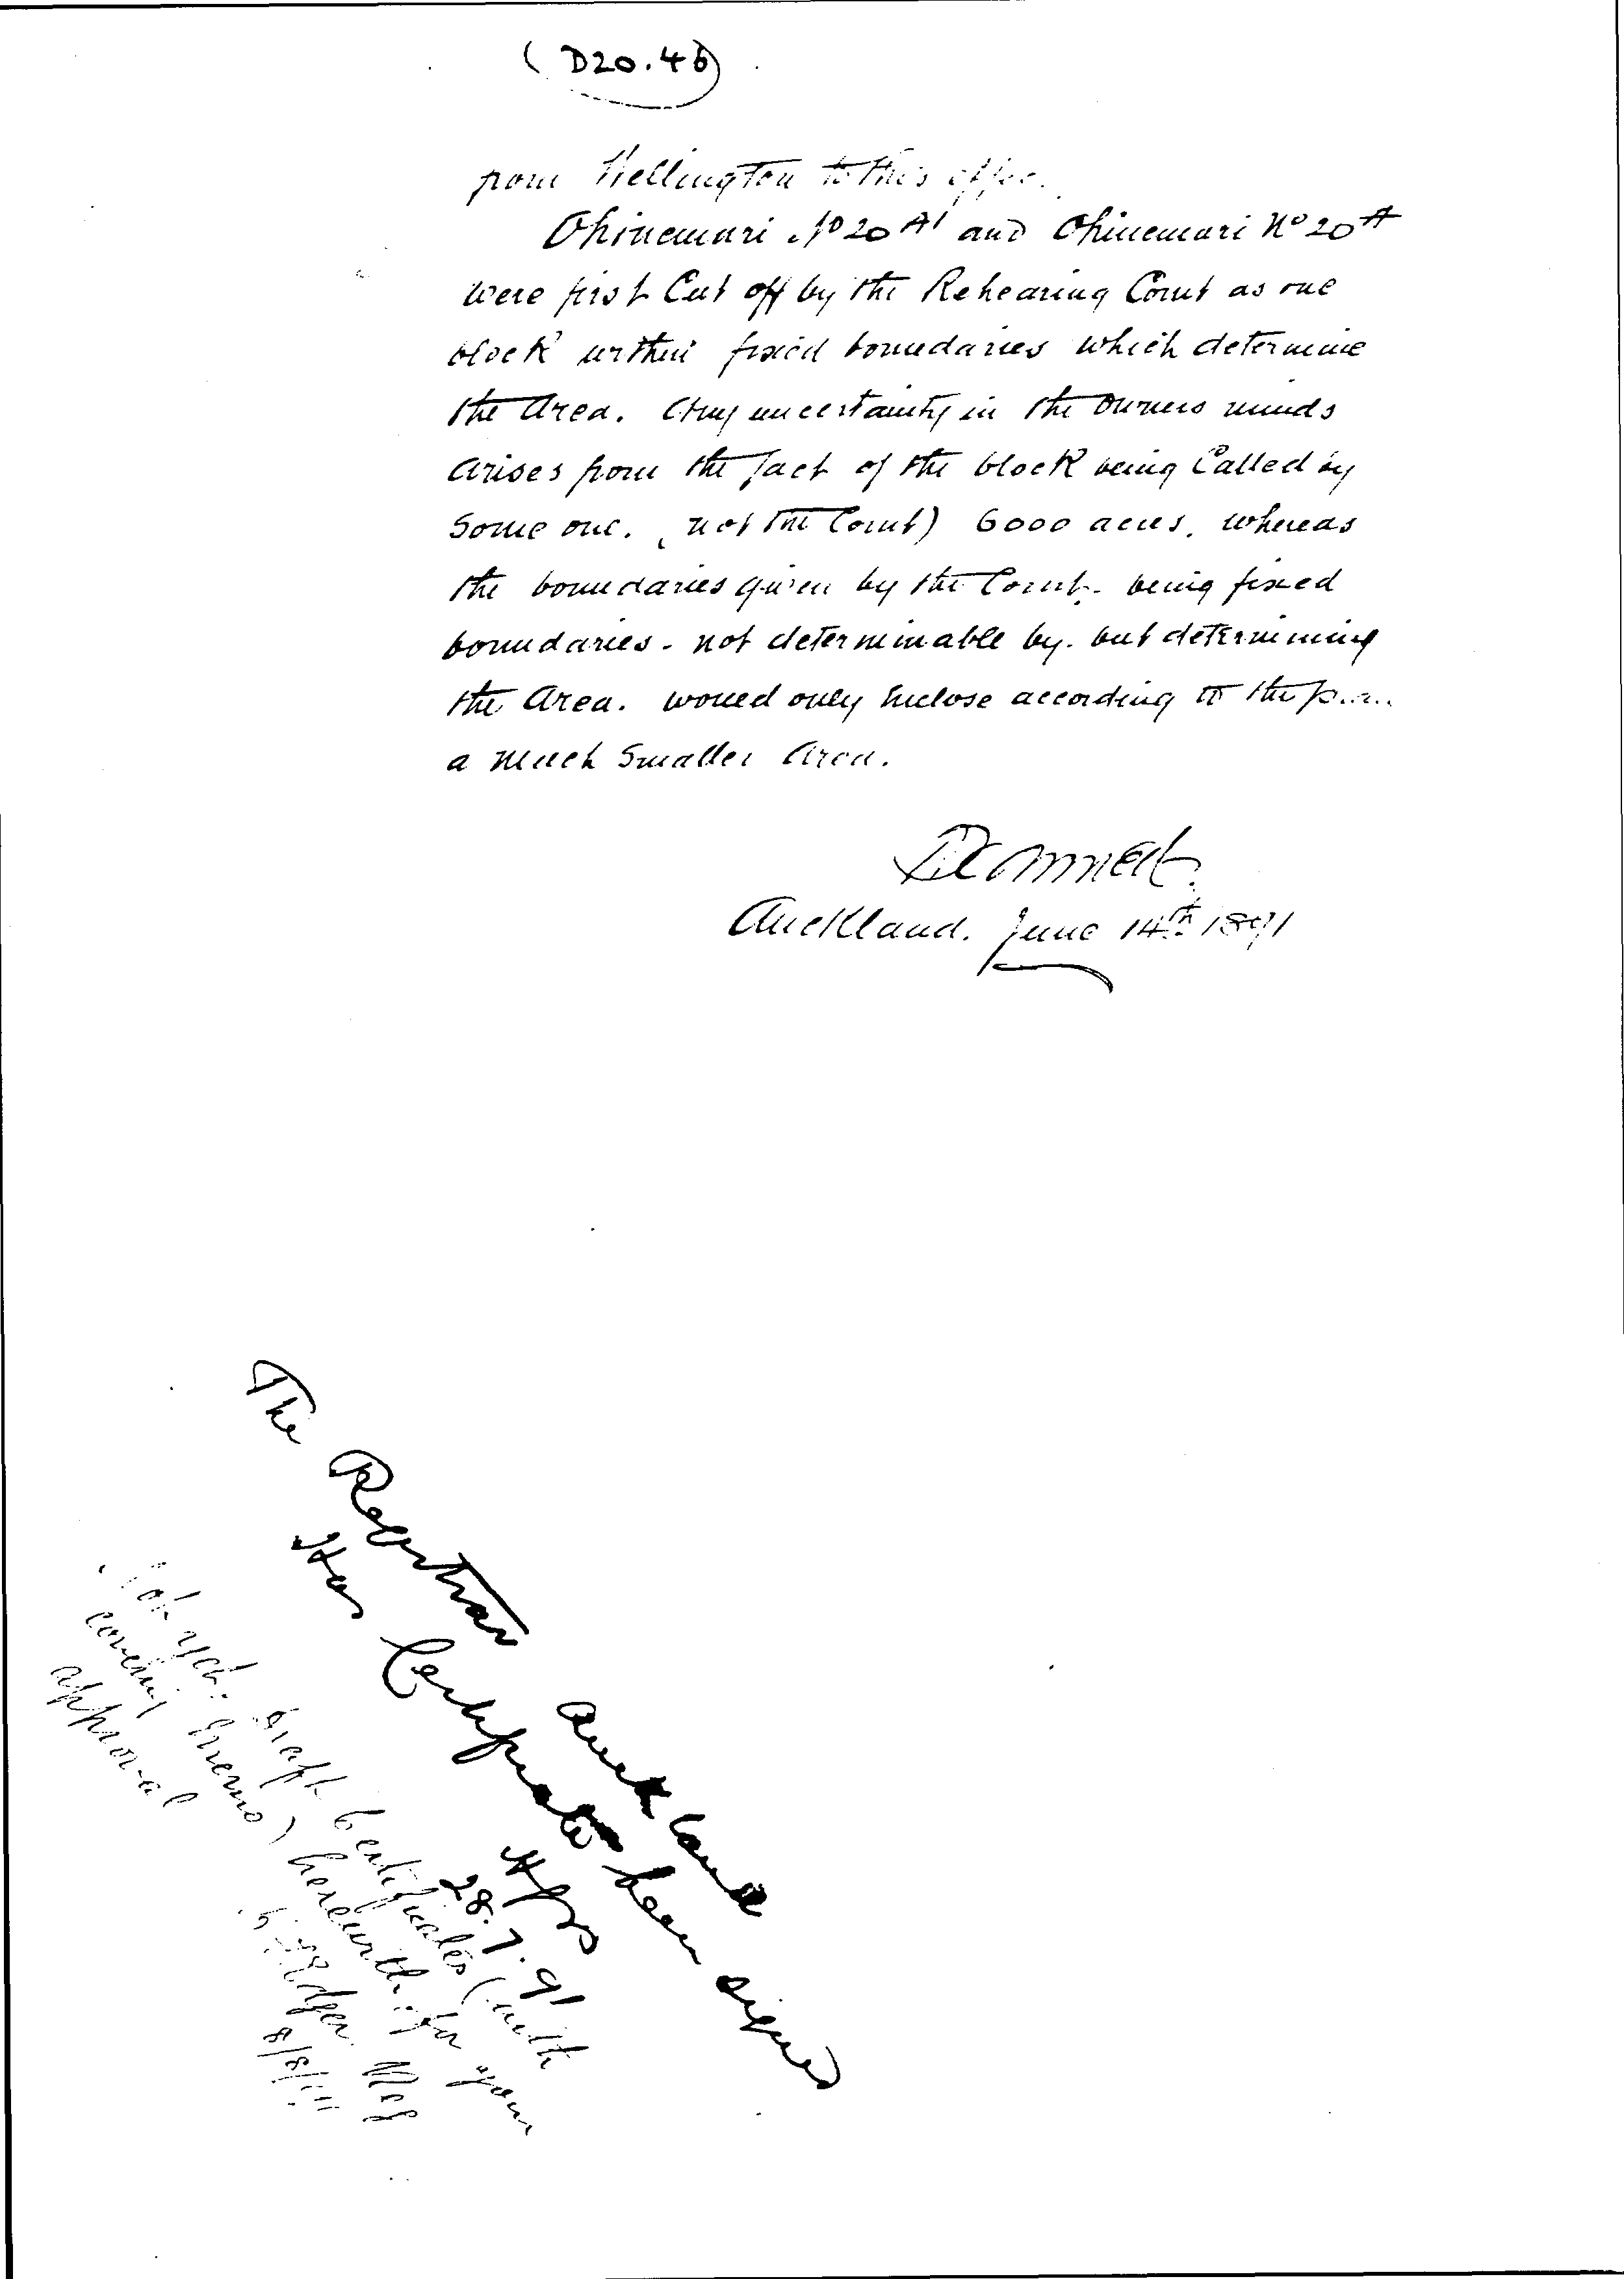 (D20.46)
from Wellington to this office.
Ohinemuri No 20 A1 and Ohinemuri No 20 A
were first Cut off by the Rehearing Court as one
block within fixed boundaries which determine
the Area. Any uncertainty in the Owners minds
arises from the fact of the block being Called by
Some one. (not the Court) 6000 acres. whereas
the boundaries given by the Court. being fixed
boundaries - not determinable by. but determining
the Area. would only inclose according to the
a much Smaller Area.
Auckland. June 14th 1891
The Registrar
Auckland
Has Certificate been signed
28.7.91
Not yet. Draft Certificates (with
covering memo) herewith for your
approval